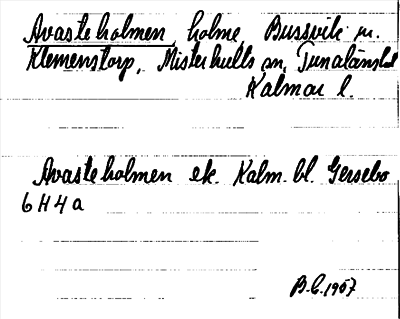 Avasteholmen, holme, Bussvik m.
Klemenstorp, Misterhults sn, Tunaläns hd
Kalmar l.
Avasteholmen ek. Kalm. bl. Gersebo
6H4a
B.C. 1957